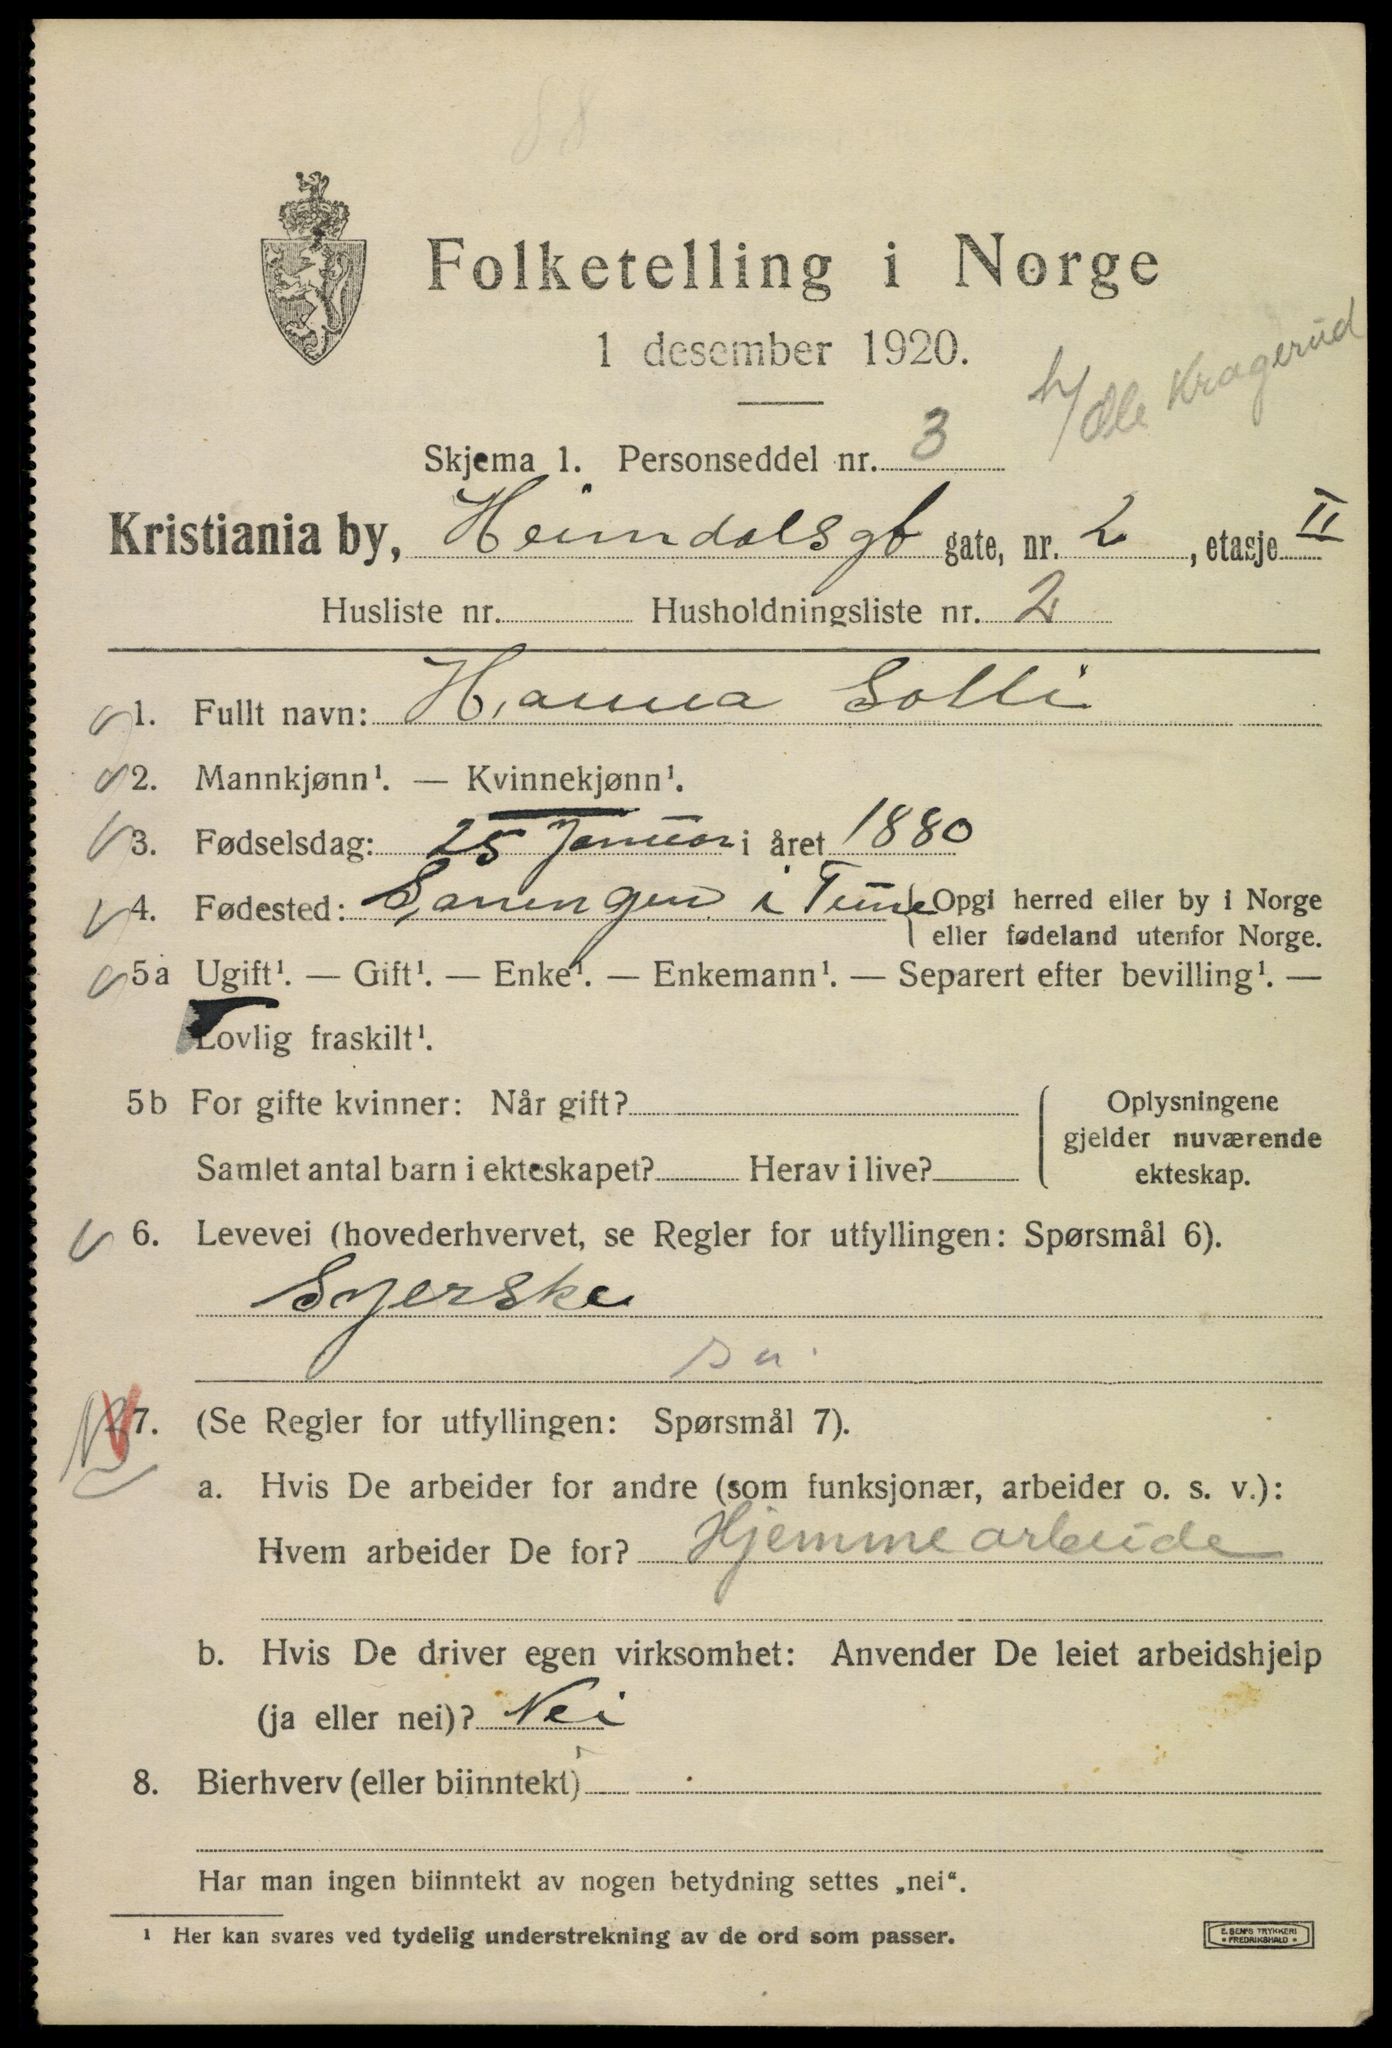 88
Folketelling i Norge
1 desember 1920.
h/ Ole Kragerud
Skjema 1. Personseddel nr. 3
Kristiania by, Heimdalsgt gate, nr. 2, etasje II
Husliste nr. Husholdningsliste nr. 2
1. Fullt navn: Hanna Solli
2. Mannkjønn¹. — Kvinnekjønn¹.
3. Fødselsdag: 25 Januar i året 1880
4. Fødested: i Tune Opgi herred eller by i Norge
eller fødeland utenfor Norge.
5a Ugift¹. — Gift¹. — Enke¹. — Enkemann¹. — Separert efter bevilling¹. —
Lovlig fraskilt¹.
5b For gifte kvinner: Når gift? Oplysningene
gjelder nuværende
Samlet antal barn i ekteskapet? Herav i live? ekteskap.
6. Levevei (hovederhvervet, se Regler for utfyllingen: Spørsmål 6).
Syerske
7. (Se Regler for utfyllingen: Spørsmål 7).
a. Hvis De arbeider for andre (som funksjonær, arbeider o. s. v.):
Hvem arbeider De for? Hjemmearbeide
b. Hvis De driver egen virksomhet: Anvender De leiet arbeidshjelp
(ja eller nei)? Nei
8. Bierhverv (eller biinntekt)
Har man ingen biinntekt av nogen betydning settes „nei“.
¹ Her kan svares ved tydelig understrekning av de ord som passer.
E. SEM'S TRYKKERI
• FREDRIKSHALD •